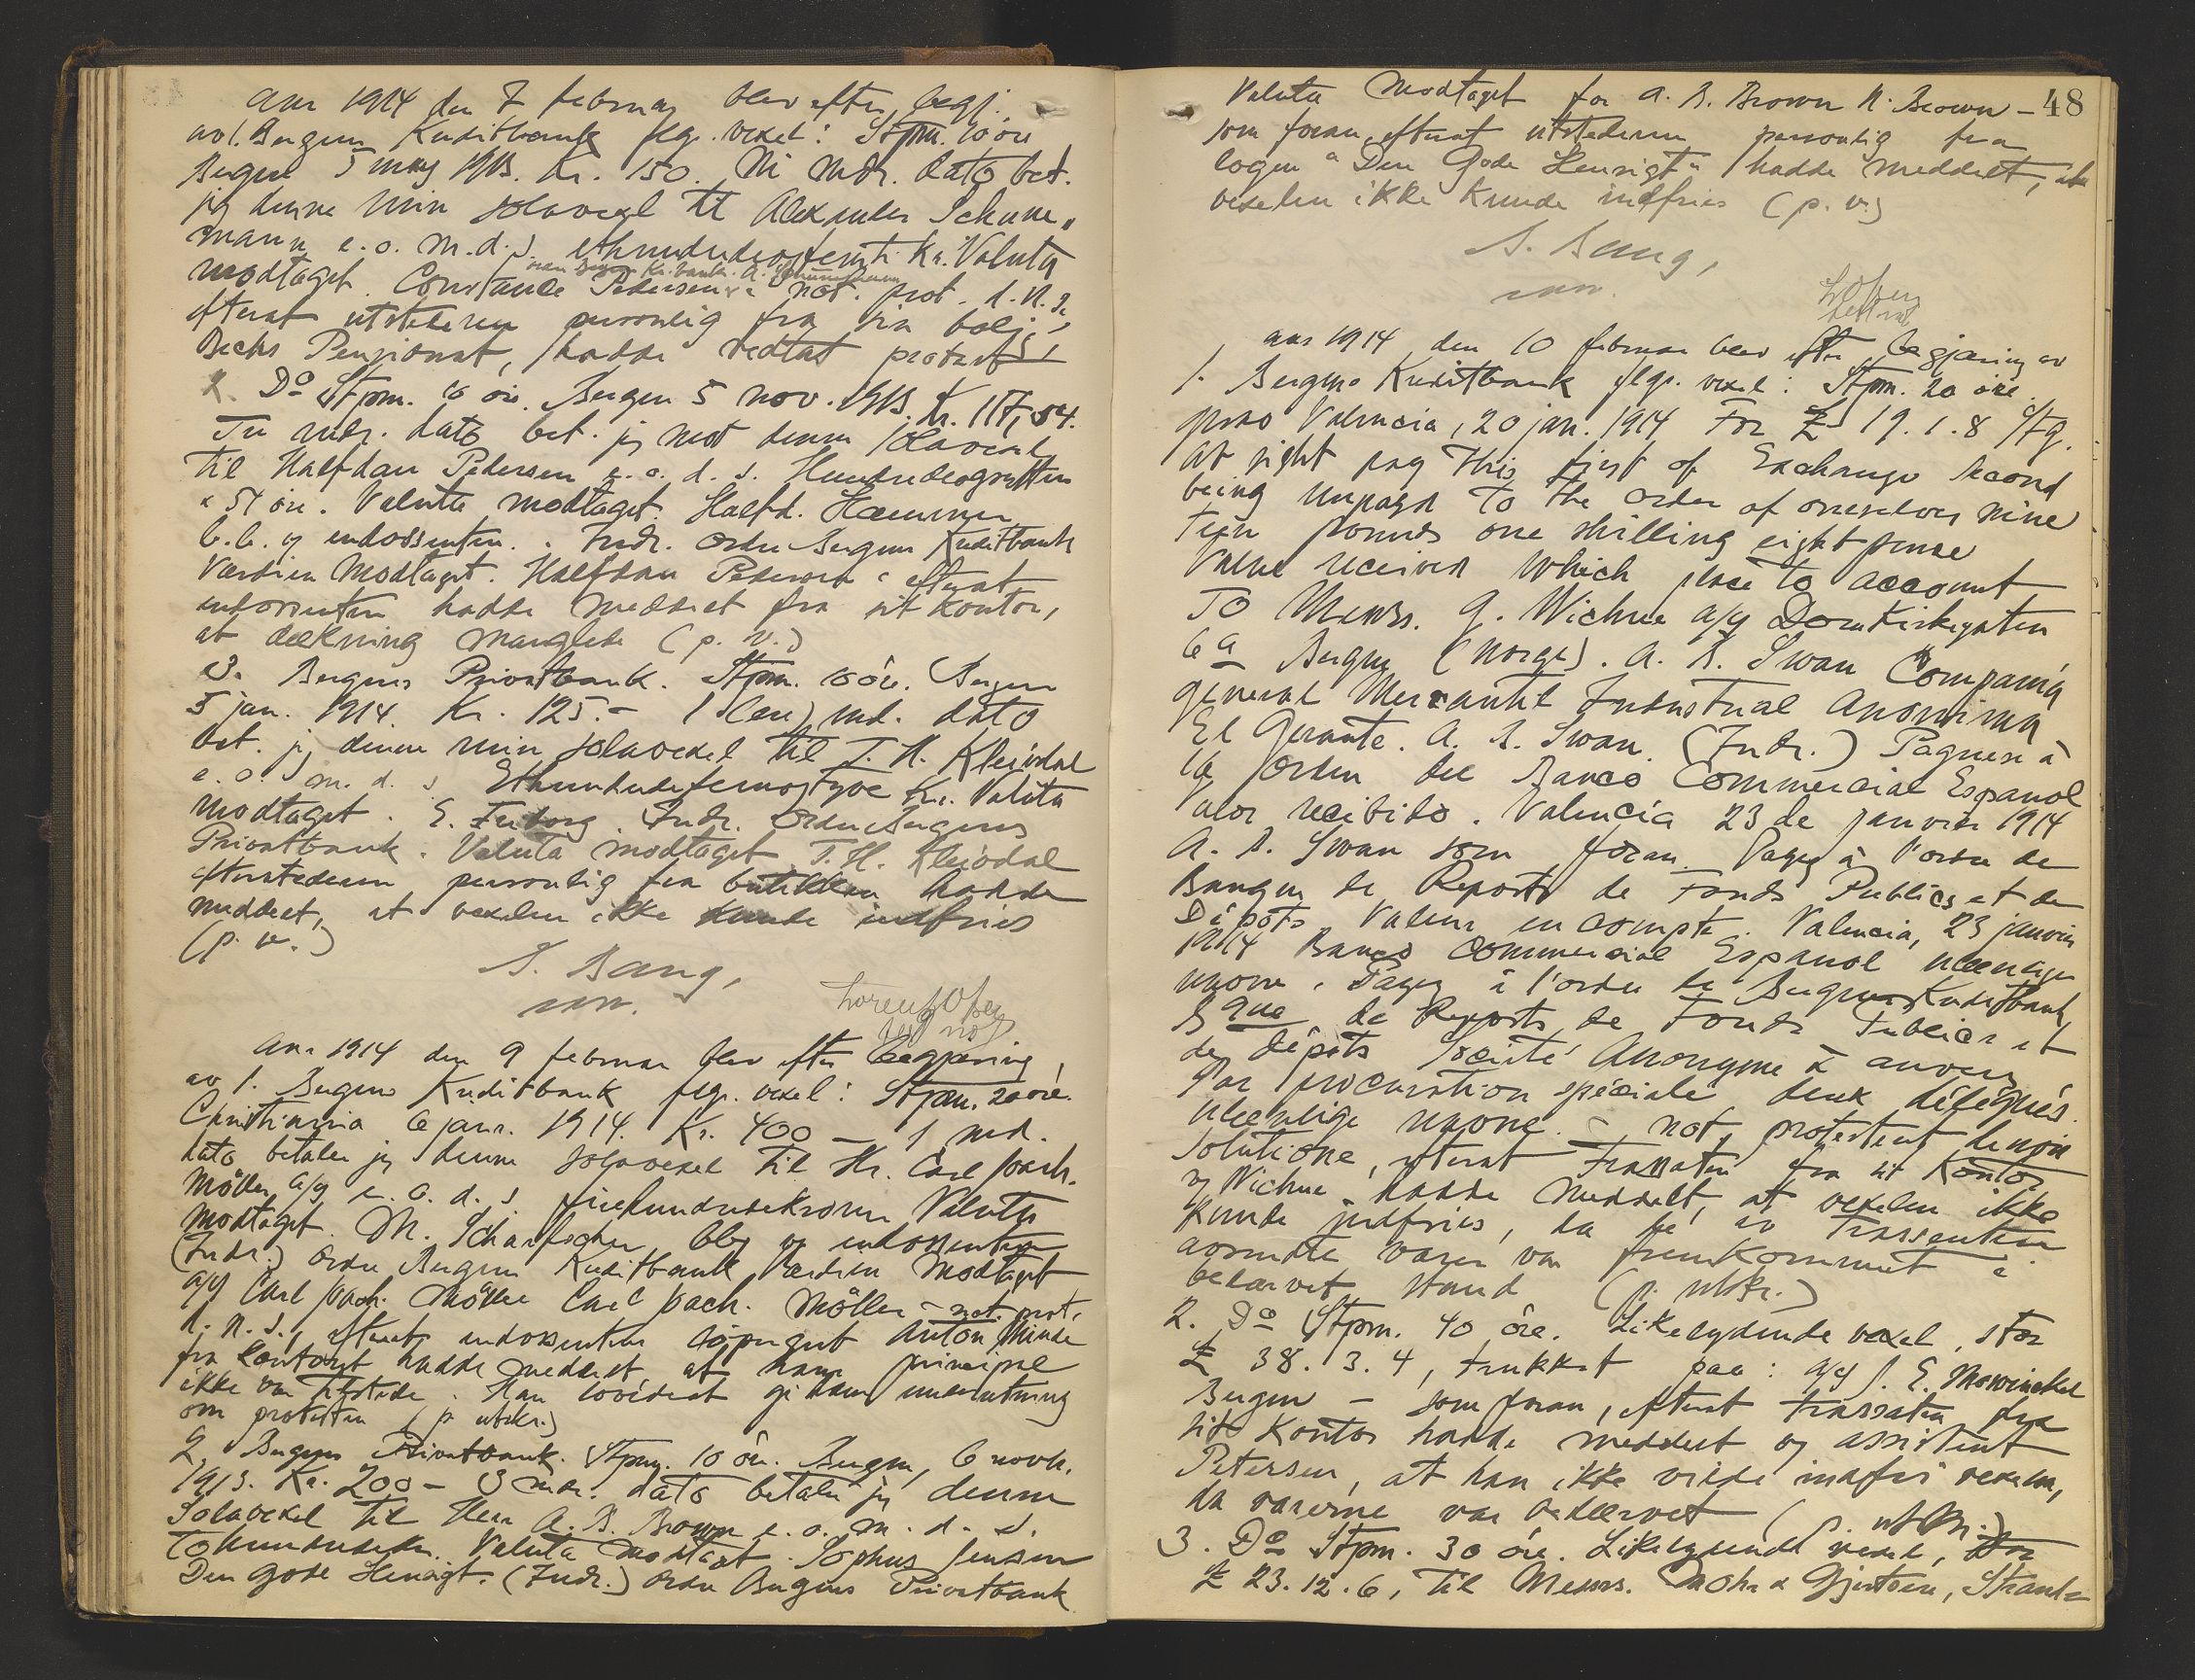 Aar 1914 den 7 februar blev efter begj.
av 1. Bergens Kreditbank flg. vexel: Stpm. 10 øre
Bergen 5 mai 1913. Kr. 150. Ni mdr. dato bet.
jeg denne min solavexl til Alexander Schune„
mann e. o. m. d. s. ethundredeogfemti Kr. Valuta
Kr. bank. A. Schünemann
modtaget. Constance Pedersen not. prot. d. n. s,
efterat utstederen personlig fra sin bolig,
Bechs Pensionat, hadde vedtat protest
2. Do Stpm. 10 øre. Bergen 5 nov. 1913. Kr. 117,54.
Tre mdr. dato bet. jeg mot denne solavexel
til Halfdan Pedersen e. o. d. s. Hundredeogsytten
& 54 øre. Valuta modtaget. Halfd.
b.b. og endossenten. Indr. Ordre Bergens Kreditbank
Værdien Modtaget. Halfdan Pedersen efterat
endossenten hadde meddelt fra sit kontor,
at dækning manglede (p. v.)
3. Bergens Privatbank. Stpm. 10 øre. Bergen
5 jan. 1914. Kr. 125.- 1 (en) md. dato
bet. jeg denne min solavexel til T. H. Klejsdal
e. o. m. d. s. Ethundredefemogtyve Kr. Valuta
modtaget. E. Friborg. Indr. Ordre Bergens
Privatbank. Valuta modtaget T. H. Klejsdal
efterat utstederen personlig fra butikken hadde
meddelt, at vexelen ikke kunde indfries
(p. v.)
S. Bang,
Aar 1914 den 9 februar blev efter begjæring
av 1. Bergens Kreditbank flg. vexel: Stpm. 20 øre.
Christiania 6 janr. 1914. Kr. 400 — 1 md.
dato betaler jeg denne solavexel til Hr. Carl Joach.
Möller a/s e. o. d. s. firehundredekroner Valuta
modtaget. M. Scharfscher bbg og endossenten
(Indr.) Ordre Bergens Kreditbank Værdien Modtaget
a/s Carl Joach. Möller Carl Joach. Möller - not. prot.
d. n. s., efterat endossentens løpegut Anton Minde
fra kontoret hadde meddelt at hans principal
ikke var tilstede. Han lovedeat gi ham underretning
om protesten (p. utskr.)
2 Bergens Privatbank. Stpm. 10 øre. Bergen, 6 novb.
1913. Kr. 200 - 3 mdr. dato betaler jeg denne
Solavexel til Herr A. B. Brown e. o. m. d. s.
Tohundredekr. Valuta modtaget. Sophus Jensen
Den gode Hensigt. (Indr.) Ordre Bergens Privatbank
48
Valuta modtaget for A. B. Brown N. Brown -
som foran, efterat utstederen personlig fra
logen "Den Gode Hensigt" hadde meddelt, at
vexelen ikke kunde indfries (p. v.)
S. Bang,
Aar 1914 den 10 februar blev efter begjæring av
1. Bergens Kreditbank flg. vexel: Stpm. 20 øre.
Grao Valencia, 20 jan. 1914 For £ 19.1.8 Stg.
At sight pay this first of Exchange second
being unpayd to the order of ourselves nine
teen pounds one shilling eight pense
Value received which place to account
To Messrs. G. Wichne a/s Domkirkegaten
6a Bergen (Norge). A. B. Swan Compania
general Mercantil Industrial Anonima
El Gerante. A. B. Swan. (Indr.) Paguese à
la orden del Banco Commercial Espanol
valor recibido. Valencia 23 de janvier 1914
A. B. Swan som foran. Payez à l'ordre de
Banque de Reports de Fonds Publics et de
Dépôts Valeur en compte. Valencia, 23 janvier
1914 Banco Commercial Espanol ulæselige
navne. Payez à l'ordre de Bergens Kreditbank,
Bque de Reports de Fonds Publics et
de dépôts Société Anonyme à Anvers
Par procuration spéciale deux délégués.
ulæselige navne. not, protestert de non
solutione, efterat trassaten fra sit Kontor
v/ Wichne hadde meddelt, at vexelen ikke
kunde indfries, da de av trassenten
avsendte varer var fremkommet i
bedærvet stand (p. utskr.)
2. Do Stpm. 40 øre. Likelydende vexel, stor
£ 38.3.4, trukket paa: a/s J. E. Mowinckel
Bergen - som foran, efterat trassaten fra
sit kontor hadde meddelt og assistent
Petersen, at han ikke vilde indfri vexelen,
da varerne var bedærvet (p. utskr.)
3. Do Stpm. 30 øre. Likelydende vexel, stor
£ 23.12.6, til Messrs. Mohr & Gjertsen, Strand=